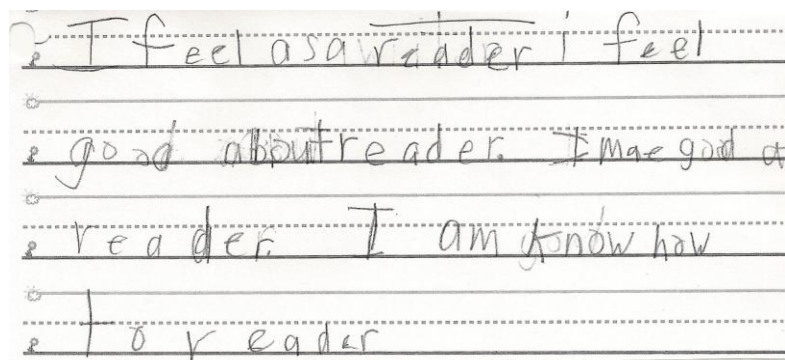 I feel as a reader i feel
good about reader. I mae good a
reader. I am know how
to reader